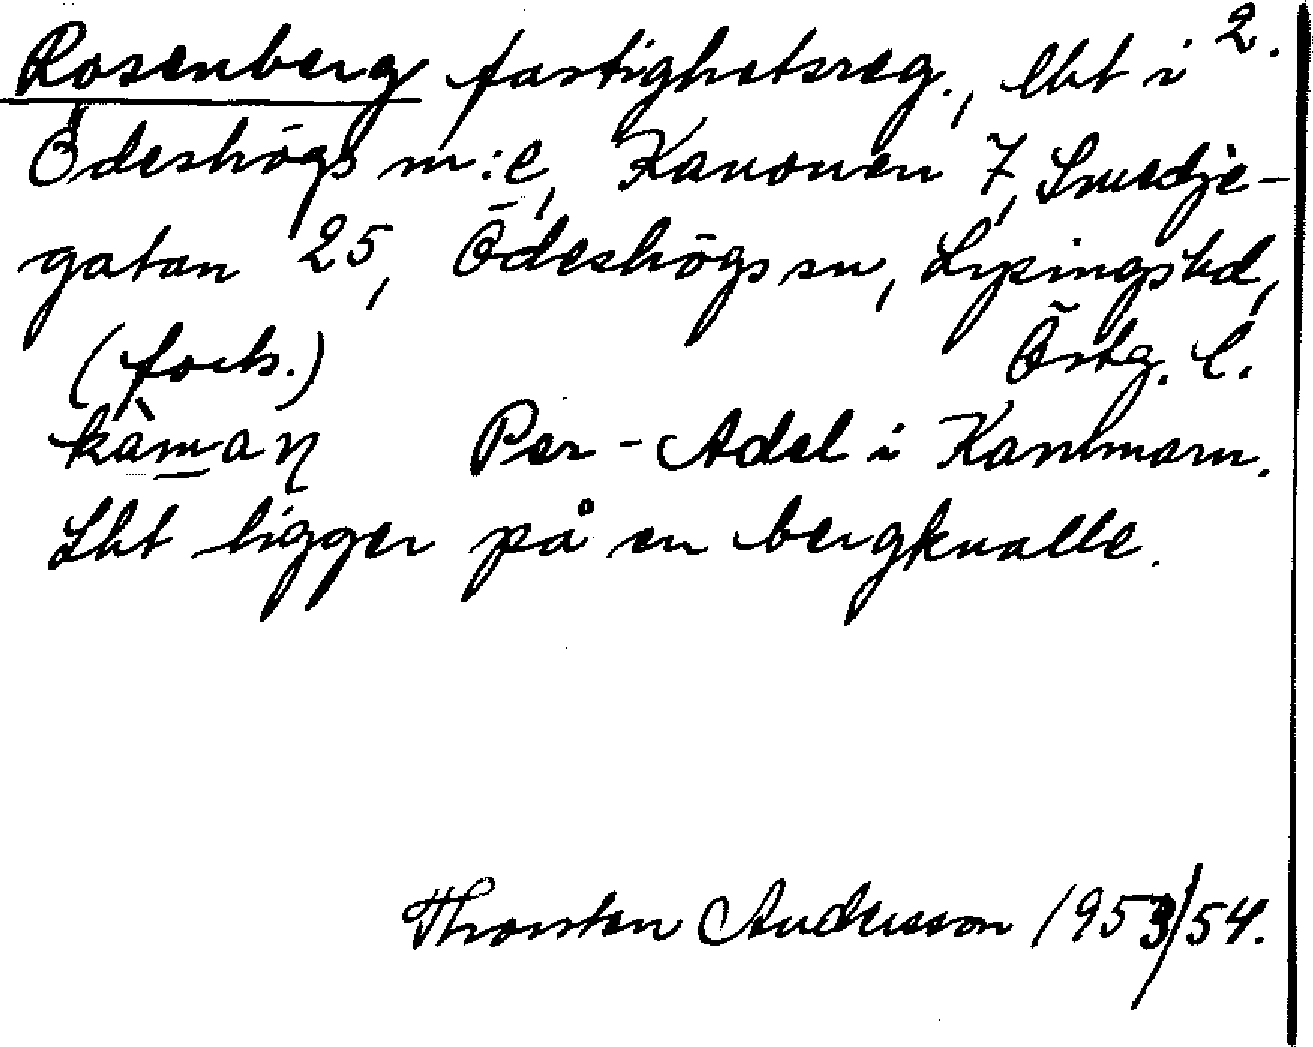 2.
Rosenberg fastighetsreg., lht i
Ödeshögs m:e, Kanonen 7, Smedje-
gatan 25, Ödeshögs sn, Lysingshd,
(forts.) Östg. l.
kàmaη Per-Adel i Kammarn.
Lht ligger på en bergknalle.
Thorsten Andersson 1953/54.